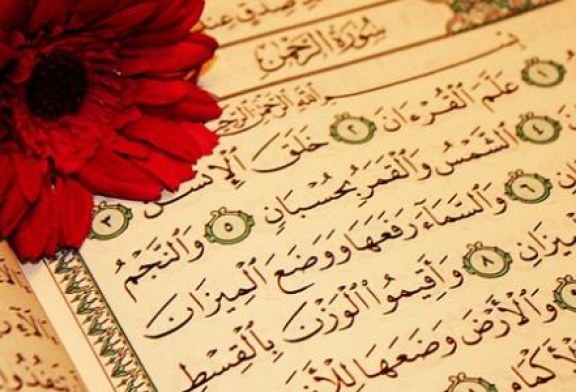 صِدْقٍ عِندَ
سُورَةُ ٱلرَّحْمَٰن
بِسْمِ ٱللَّهِ ٱلرَّحْمَٰنِ ٱلرَّحِيمِ
١ عَلَّمَ ٱلْقُرْءَانَ ٢ خَلَقَ ٱلْإِنسَٰنَ ٣
٤ ٱلشَّمْسُ وَٱلْقَمَرُ بِحُسْبَانٍ ٥ وَٱلنَّجْمُ
٦ وَٱلسَّمَآءَ رَفَعَهَا وَوَضَعَ ٱلْمِيزَانَ
مِيزَانِ ٨ وَأَقِيمُوا۟ ٱلْوَزْنَ بِٱلْقِسْطِ
وَٱلْأَرْضَ وَضَعَهَا